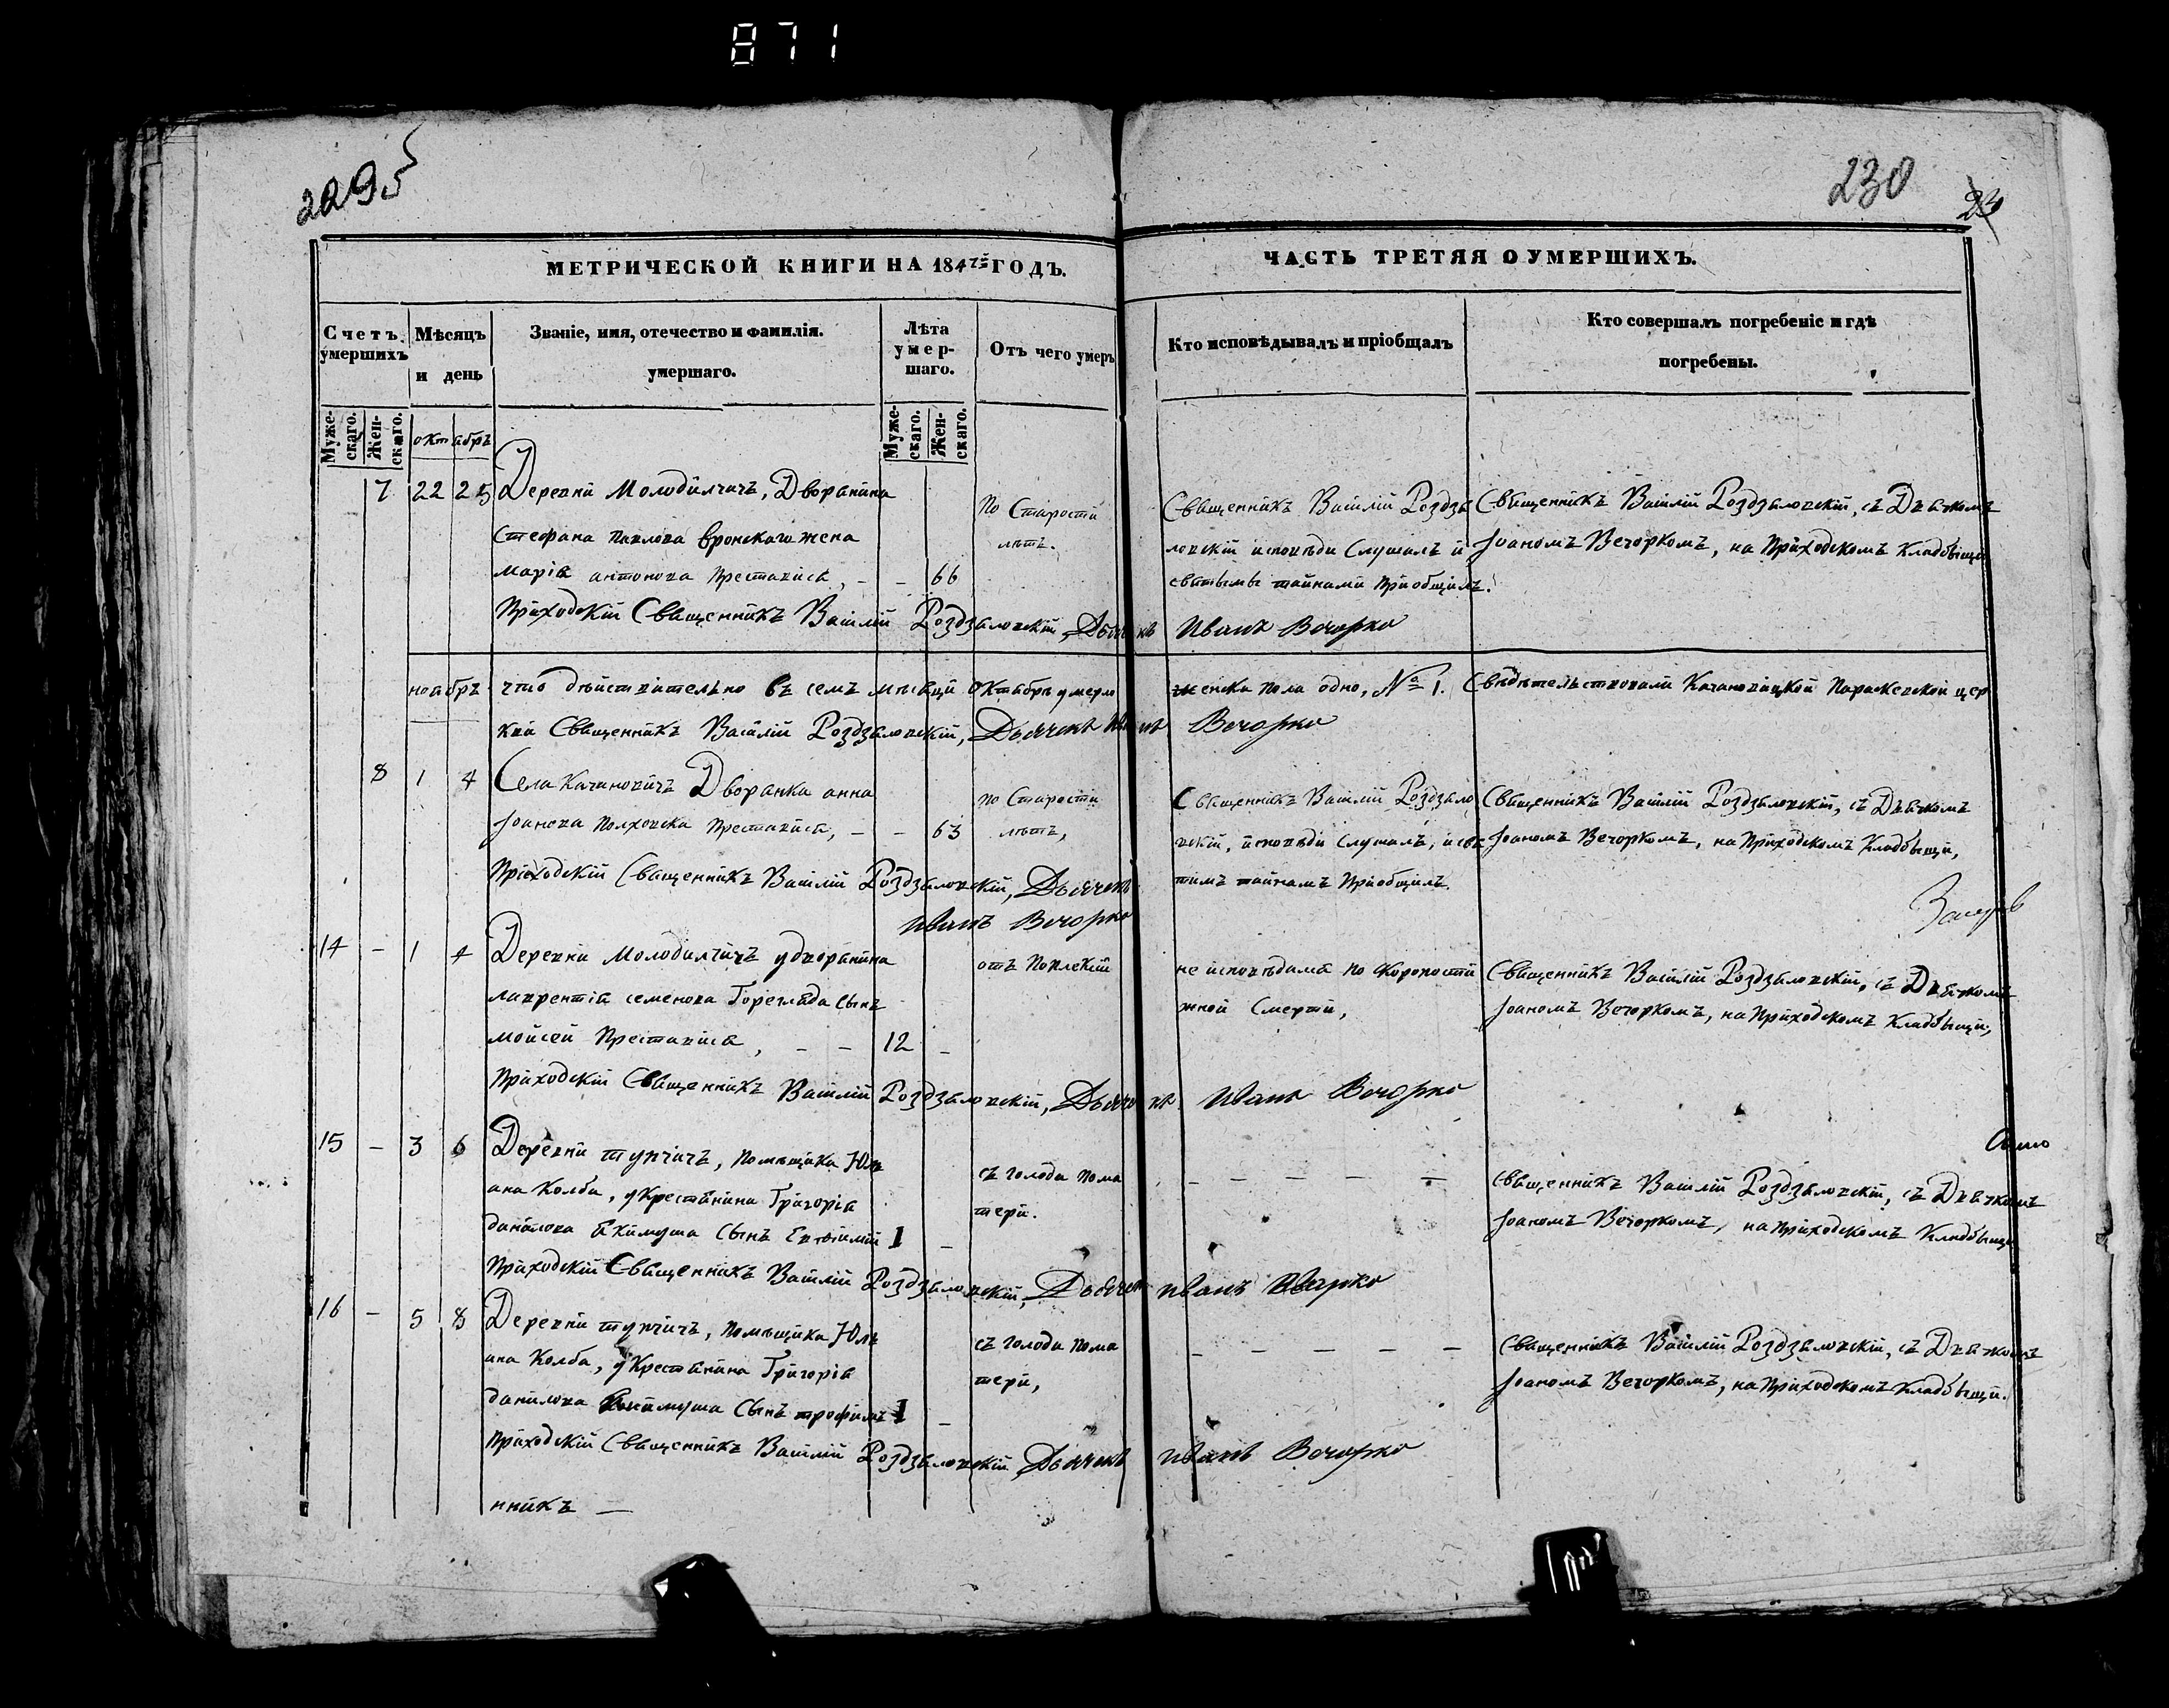 871
2295
230
МЕТРИЧЕСКОЙ КНИГИ НА 1847й ГОДЪ.
ЧАСТЬ ТРЕТЯЯ О УМЕРШИХЪ.
Счетъ умершихъ
Мѣсяцъ и день
Званіе, имя, отечество и фамилія умершаго.
Лѣта умер-шаго.
Отъ чего умеръ
Кто исповѣдывалъ и пріобщалъ
Кто совершалъ погребеніе и гдѣ погребены.
Муже-скаго.
Жен-скаго.
октябрь
Муже-скаго.
Жен-скаго.
7 22 25 Деревни Молодилчичъ, Дворянина
Стефана Павлова Вронскаго жена
марія антонова Преставися, - - 66
По Старости
лѣтъ.
Священникъ Василій Роздзя
ловскій исповѣди Слушалъ и
святыми тайнами Пріобщилъ.
Священникъ Василій Роздзяловскій, съ Дьячкомъ
Іоаномъ Вечоркомъ, на Приходскомъ Кладбищи
Приходскій Священникъ Василій Роздзяловскій, Дьячекъ Иванъ Вечорко
ноябрь что дѣйствително въ семъ мѣсяци Октябрѣ умерло женска пола одно, № 1. Свидѣтельствовали Качановицкой Параскевской цер
кви Священникъ Василій Роздзяловскій, Дьячекъ Иванъ Вечорко
8 1 4 Села Качановичъ Дворянка анна
Іоанова Полховска Преставися, - - 63
по Старости
лѣтъ,
Священникъ Василій Роздзяло
вскій, исповѣди Слушалъ, и свя
тимъ тайнамъ Пріобщилъ.
Священникъ Василій Роздзяловскій, съ Дьячкомъ
Іоаномъ Вечоркомъ, на Приходскомъ Кладбищи,
Приходскій Священникъ Василій Роздзяловскій, Дьячекъ
Иванъ Вечорко
14 - 1 4 Деревни Молодилчичъ у дворянина
лаврентія семенова Горегляда Сынъ
мойсей Преставися, - - 12 -
не исповѣдана по Скоропости
жной Смерти,
Священникъ Василій Роздзяловскій, съ Дьячкомъ
Іоаномъ Вечоркомъ, на Приходскомъ Кладбищи,
Приходскій Священникъ Василій Роздзяловскій, Дьячекъ Иванъ Вечорко
15 - 3 6 Деревни тупчичъ, Помѣщика Юли
ана Колба, у Крестянина Григорія
данилова Акимуша Сынъ Евфимій 1 -
съ голода Пома
тери.
- - - - -
Священникъ Василій Роздзяловскій, съ Дьячкомъ
Іоаномъ Вечоркомъ, на Приходскомъ Кладбищи
Приходскій Священникъ Василій Роздзяловскій, Дьячекъ Иванъ Вечорко
16 - 5 8 Деревни тупчичъ, Помѣщика Юли
ана Колба, у Крестянина Григорія
данилова Акимуша Сынъ трофимъ 1 -
съ голода Пома
тери,
- - - - -
Священникъ Василій Роздзяловскій, съ Дьячкомъ
Іоаномъ Вечоркомъ, на Приходскомъ Кладбищи.
Приходскій Священникъ Василій Роздзяловскій, Дьячекъ Иванъ Вечорко
нникъ —